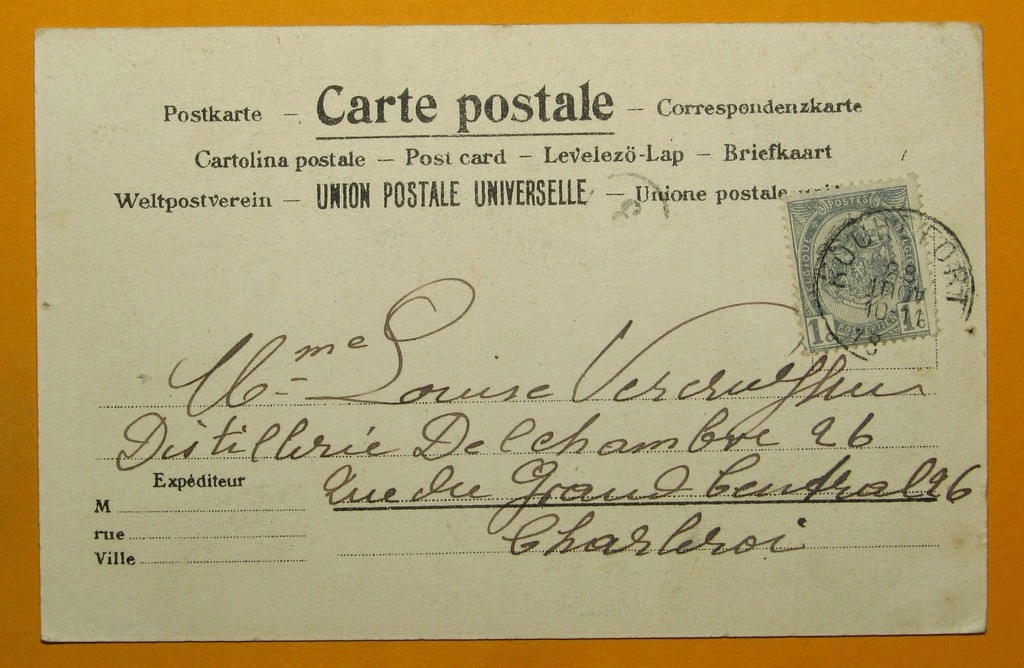 Postkarte – Carte postale – Correspondenzkarte
Cartolina postale – Post card – Levelezö-Lap – Briefkaart
Weltpostverein – UNION POSTALE UNIVERSELLE – Unione postale
POSTES
BELGIQUE BELGIE
1 1
ROCHEFORT
10-11
Mme Louise
Distillerie Delchambre 26
Rue du Grand Central 26
Charleroi
Expéditeur
M
rue
Ville